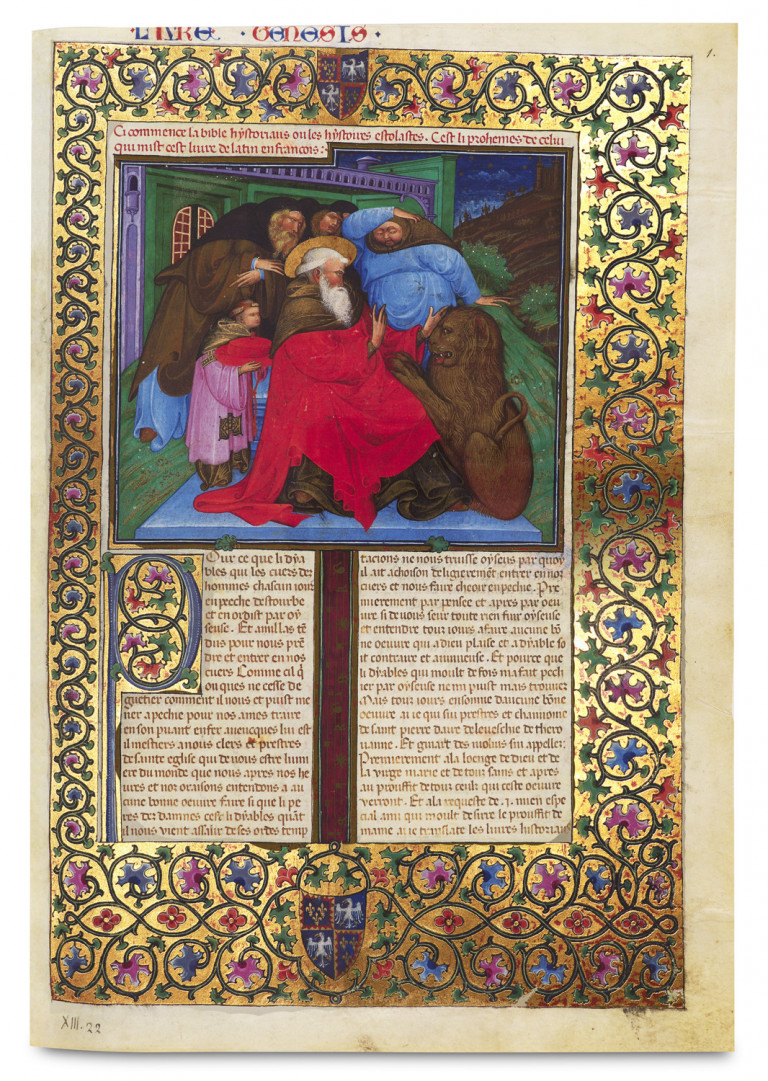 LIVRE · GENESIS ·
1.
Ci commence la bible hystoriaus ou les hystoires escolastes. C est li prohemes de celui
qui mist cest livre de latin en francois:
Pour ce que li dya
bles qui les cuers des
hommes chascun iour
en peche destourbe
et en ordist par oy
seuse. Et amil las tē
dus pour nous prē
dre et entrer en nos
cuers Comme cil q̄
onques ne cesse de
guetier comment il nous et puist me
ner a peche pour nos ames traire
en son puant enfer avencques lui est
il mestiers a nous clers et prestres
de sainte eglise qui devons estre lumi
ere du monde que nous apres nos he
ures et nos oraisons entendons a au
cune bonne oeuvre faire si que li pe
res des damnes cest li dyables quāt
il nous vient assalir de ses ordes temp
tacions ne nous truisse oyseus par quoy
il ait achoison de ligierement entrer en nos
cuers et nous faire cheoir en peche. Pre
mierement par pensee et apres par oeu
vre si devons seur toute rien fuir oyseuse
et entendre tous iours a faire aucune bō
ne oeuvre qui a dieu plaise et a dyable so
it contraire et annuieuse. Et pour ce que
li dyables qui moult de fois ma fait pech
ier par oyseuse ne mi puist mais trouver
Mais tous iours ensonne daucune bōne
oeuvre ai ie qui sui prestres et channoine
de saint pierre daire de leveschie de thero
uanne. Et guiart des molins sui appeles:
Premierement a la loenge de dieu et de
la virge marie et de tous sains et apres
au prouffit de tous ceulx qui ceste oeuvre
verront. Et a la requeste de .i. mien espe
cal ami qui moult desirre le prouffit de
mame ai ie translate les livres historiaus
XIII. 22